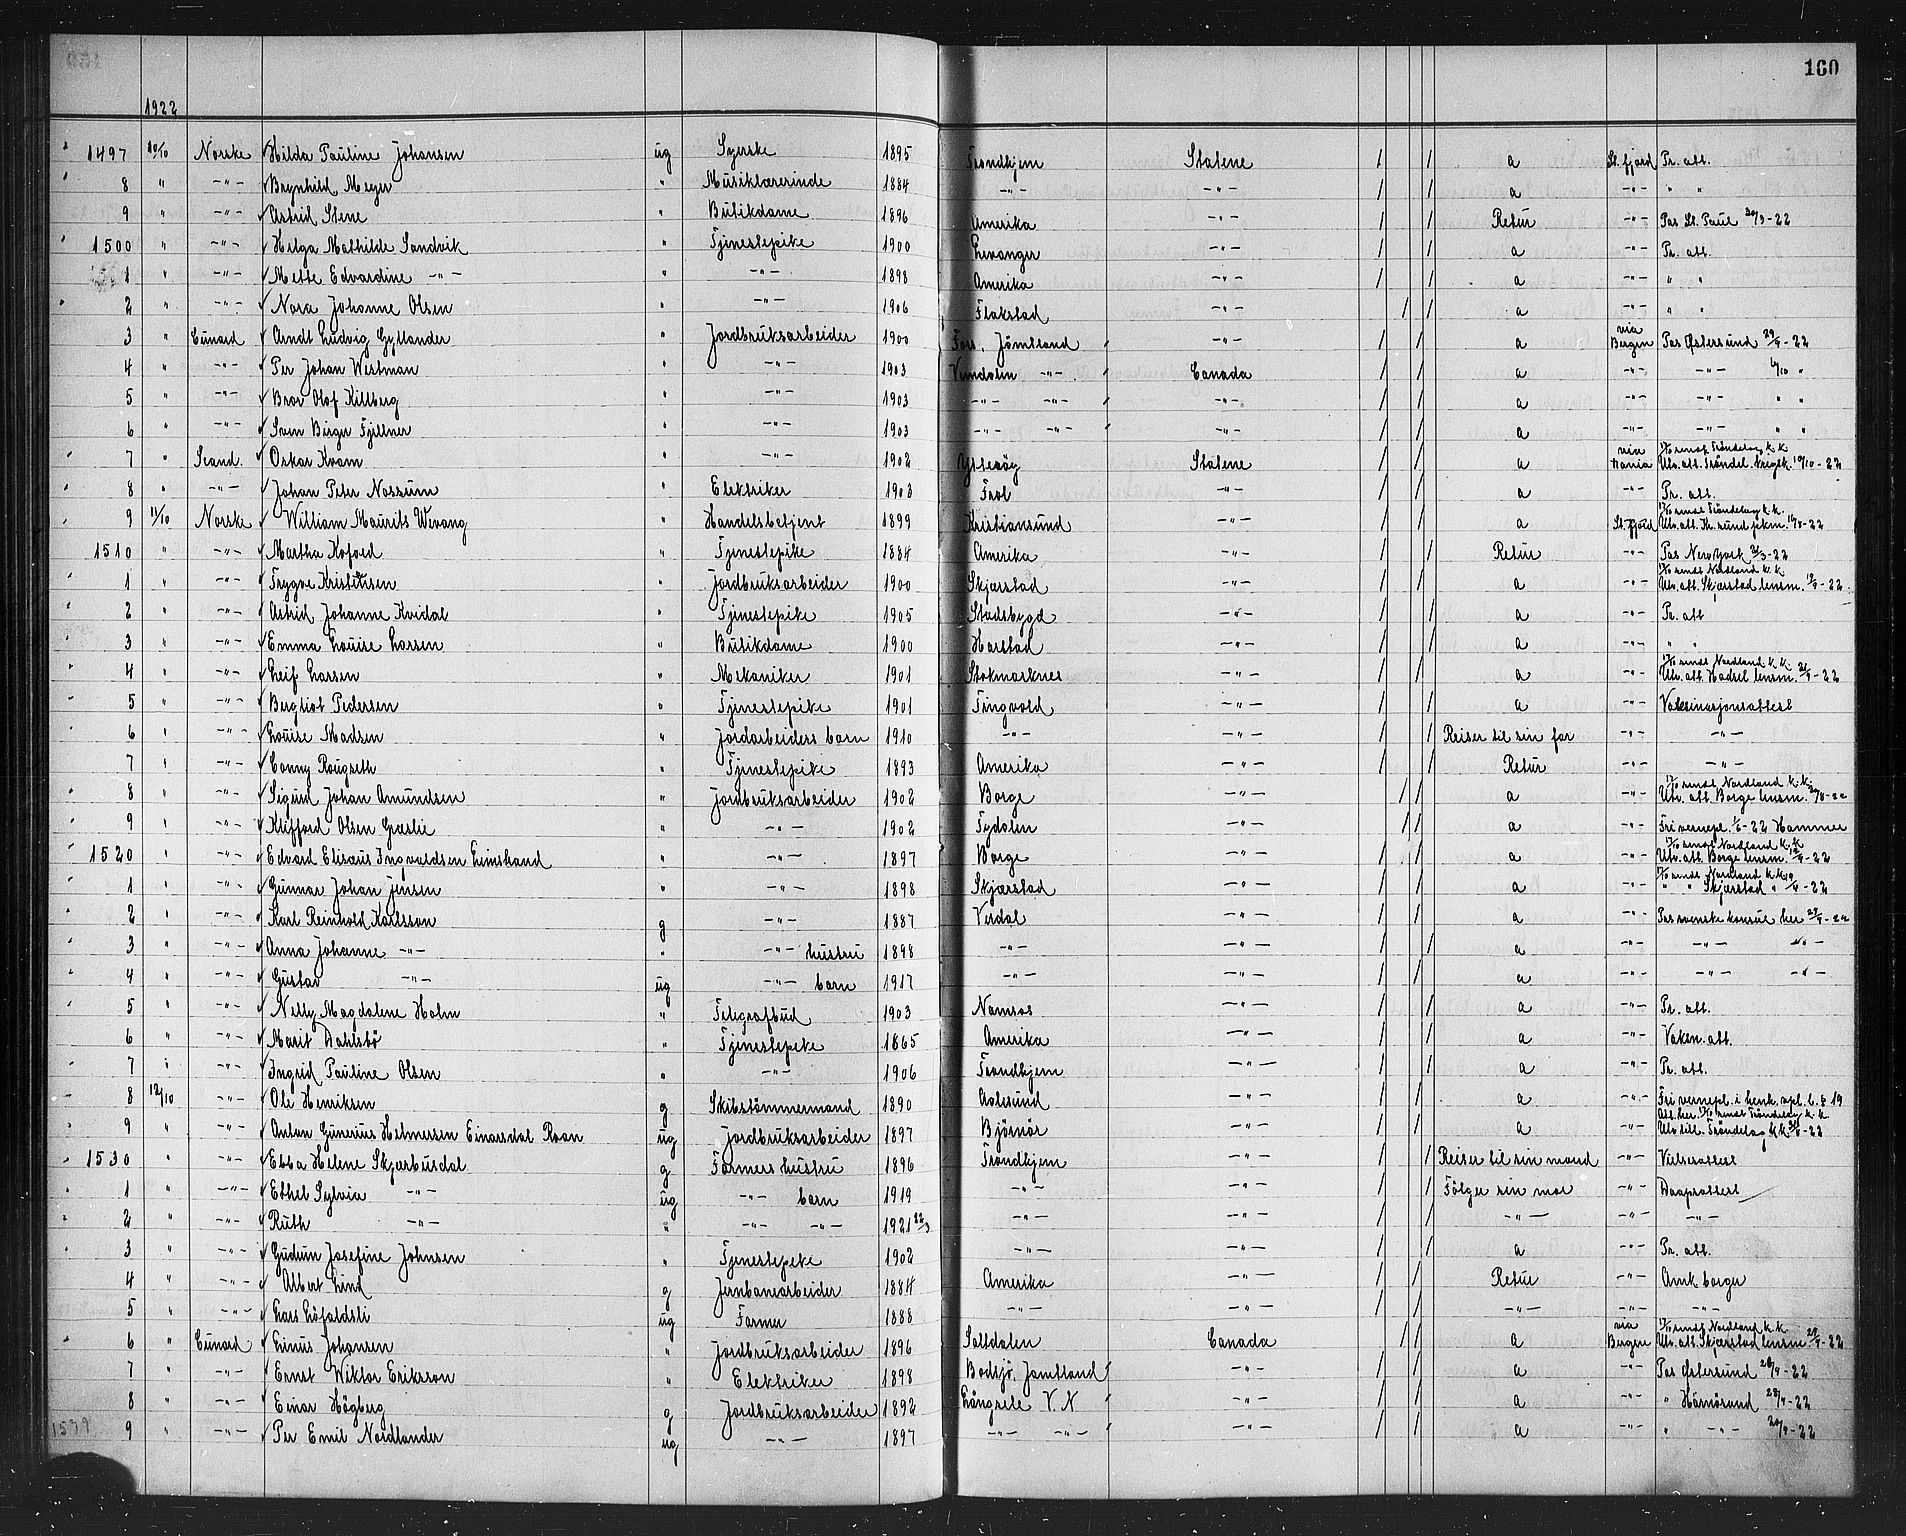 160
1922
1497 10/10 Norske Hilda Pauline Johansen ug Syerske 1895 Trondhjem Statene / / a St.fjord Pr. att.
8 " -"- Brynhild Meyer " Musiklærerinde 1884 -"- -"- / / a -"- " "
9 " -"- Astrid Stene " Butikdame 1896 Amerika -"- / / Retur -"- Pas St. Paul 30/3-22
1500 " -"- Helga Mathilde Sandvik " Tjenestepike 1900 Levanger -"- / / a -"- Pr. att.
1 " -"- Mette Edvardine -"- " -"- 1898 Amerika -"- / / a -"- " "
2 " -"- Nora Johanne Olsen " -"- 1906 Flakstad -"- / / a -"- " "
3 " Cunard Arndt Ludvig Gyllander " Jordbruksarbeider 1900 Fors, Jämtland -"- / / a via Bergen Pas Østersund 29/9-22
4 " -"- Per Johan Westman " -"- 1903 Vemdalen -"- Canada / / a -"- -"- 4/10 "
5 " -"- Bror Olof Killberg " -"- 1903 -"- -"- -"- / / a -"- -"- " "
6 " -"- Sven Birger Fjellner " -"- 1903 -"- -"- -"- / / a -"- -"- " "
7 " Scand. Oskar Kvam " -"- 1902 Ytterøy Statene / / a via Kania Utv. att. Tröndel. krigsk. 10/10-22
8 " -"- Johan Peter Nossum " Elektriker 1903 Frol -"- / / a -"- Pr. att.
9 11/10 Norske William Maurits Wevang " Handelsbetjent 1899 Kristiansund -"- / / a St.fjord Utv. att. Kr.sund pkm. 16/8-22
1510 " -"- Martha Kofoed " Tjenestepike 1884 Amerika -"- / / Retur -"- Pas New York 31/3-22
1 " -"- Trygve Kristensen " Jordbruksarbeider 1900 Skjærstad -"- / / a -"- Utv. att. Skjærstad lensm. 18/9-22
2 " -"- Astrid Johanne Kvidal " Tjenestepike 1905 Stadsbygd -"- / / a -"- Pr. att
3 " -"- Emma Louise Larsen " Butikdame 1900 Harstad -"- / / a -"- " "
4 " -"- Leif Larsen " Mekaniker 1901 Stokmarknes -"- / / a -"- Utv. att. Hadsel lensm. 21/9-22
5 " -"- Bergliot Pedersen " Tjenestepike 1901 Tingvold -"- / / a -"- Vaksinasjonsattest
6 " -"- Louise Madsen " Jordarbeiders barn 1910 -"- -"- / / Reiser til sin far -"- -"-
7 " -"- Conny Rougseth " Tjenestepike 1893 Amerika -"- / / Retur -"- -"-
8 " -"- Sigurd Johan Amundsen " Jordbruksarbeider 1902 Borge -"- / / a -"- 17/10 sendt Nordland k.k. Utv. att. Borge lensm. 30/8-22
9 " -"- Klifford Olsen Græslie " -"- 1902 Tydalen -"- / / a -"- Fri vernepl. 1/6-22 Hammer
1520 " -"- Edvard Elisæus Ingvaldsen Leinstrand " -"- 1897 Borge -"- / / a -"- 17/10 sendt Nordland k.k. Utv. att. Borge lensm. 12/9-22
1 " -"- Gunnar Johan Jensen " -"- 1898 Skjærstad -"- / / a -"- 17/10 sendt Nordland k.k. " " Skjærstad " 19/9-22
2 " -"- Karl Reinhold Karlsson g -"- 1887 Verdal -"- / / a -"- Pas svenske konsul her 29/9-22
3 " -"- Anna Johanne -"- " -"- hustru 1898 -"- -"- / / a -"- -"- -"-
4 " -"- Gustav -"- ug -"- barn 1917 -"- -"- / / a -"- -"- -"-
5 " -"- Nelly Magdalene Holm " Telegrafbud 1903 Namsos -"- / / a -"- Pr. att.
6 " -"- Marit Dahlsbö " Tjenestepike 1865 Amerika -"- / / a -"- Vaksn. att.
7 " -"- Ingrid Pauline Olsen " -"- 1906 Trondhjem -"- / / a -"- Pr. att.
8 12/10 -"- Ole Henriksen g Skibstömmermand 1890 Aalesund -"- / / a -"- Fri vernepl. i henh. vpl. l. § 19
9 " -"- Anton Gunerius Helmersen Einarsdal Roan ug Jordbruksarbeider 1897 Björnör -"- / / a -"- Utv till. Tröndelag k.k.
1530 " -"- Ebba Helene Skjærbusdal g Farmers hustru 1896 Trondhjem -"- / / Reiser til sin mand -"- Vielsesattest
1 " -"- Ethel Sylvia -"- ug -"- barn 1919 -"- -"- / / Fölger sin mor -"- Daapsattest
2 " -"- Ruth -"- " -"- -"- 1921 22/3 -"- -"- / / -"- -"- -"-
3 " -"- Gudrun Josefine Johnsen " Tjenestepike 1902 -"- -"- / / a -"- Pr. att.
4 " -"- Albert Lind g Jernbanearbeider 1884 Amerika -"- / / Retur -"- Amk borger
5 " -"- Lars Löfaldsli ug Farmer 1888 -"- -"- / / -"- -"- -"-
6 " Cunard Einus Johansen " Jordbruksarbeider 1896 Saltdalen Canada / / a via Bergen 17/10 sendt Nordland k.k. Utv. att. Skjærstad lensm. 29/9-22
7 " -"- Ernst Wiktor Eriksson " Elektriker 1898 Bodsjö, Jämtland -"- / / a -"- Pas Østersund 28/9-22
8 " -"- Einar Högberg g Jordbruksarbeider 1892 Långsele V. N -"- / / a -"- " Härnösand 28/9-22
1539 9 " -"- Per Emil Nordlander ug -"- 1897 -"- -"- -"- / / a -"- " -"- 20/9-22